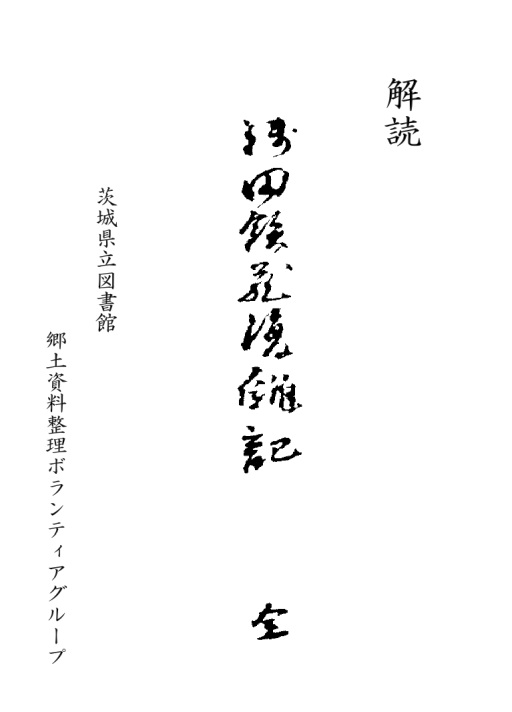 解読
田 雜記 全
茨城県立図書館
郷土資料整理ボランティアグループ